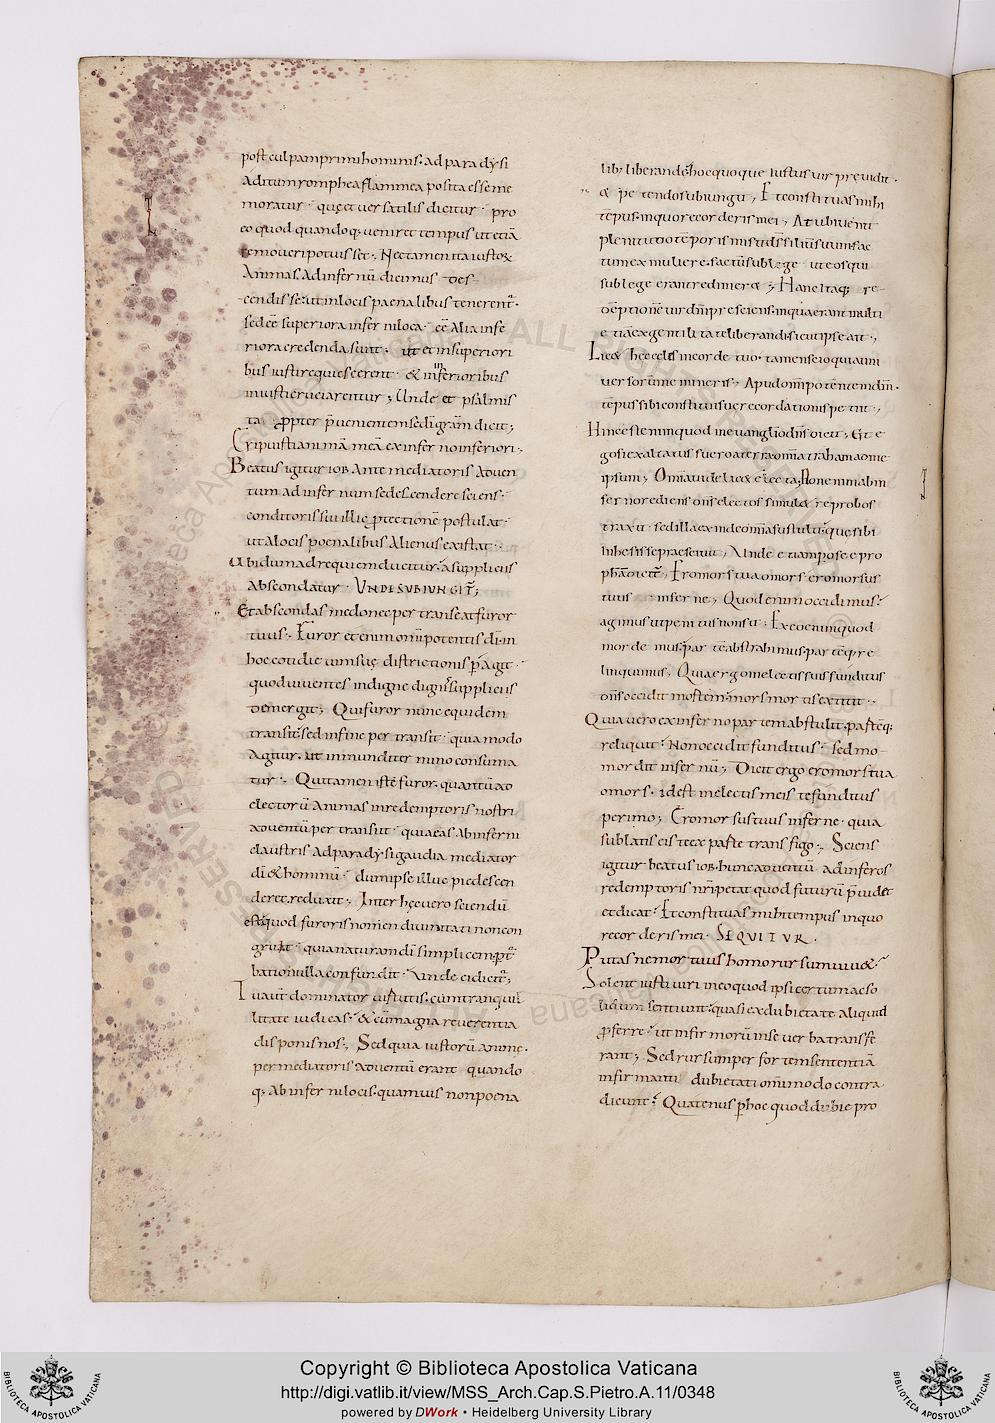 post culpam primi hominis. ad paradysi
aditum romphea flammea posita esse me
moratur. quę et versatilis dicitur. pro
eo quod quandoq; veniret tempus ut etiā
removeri potuisset. Nec tamen ita iustoꝝ
animas ad infernū dicimus des
cendisse. ut in locis paenalibus tenerent͛.
sed eē superiora inferni loca. eē alia infe
riora credenda sunt. ut et in superiori
bus iusti requiescerent. & in inferioribus
iniusti cruciarentur; Unde et psalmis
ta ꝓpter p̄venientem se dī gram̄ dicit;
Eripuisti animā meā ex inferno inferiori.
Beatus igitur iob ante mediatoris adven
tum ad infernum se descendere sciens.
conditoris sui illic ꝓtectionē postulat.
ut a locis poenalibus alienus existat.
Ubi dum ad requiem ducitur. a suppliciis
abscondatur. UNDE SUBIUNGIT͛;
Et abscondas me donec pertranseat furor
tuus. Furor etenim om̄ipotentis dī. in
hoc cotidie vim suę districtionis p̄agit.
quod viventes indigne dignis suppliciis
demergit; Qui furor nunc equidem
transit. sed in fine pertransit. quia modo
agitur. ut in mundi ter mino consuma
tur. Qui tamen iste furor. quantū ad
electorū animas in redemptoris nostri
adventū pertransiit. quia eas ab inferni
claustris ad paradysi gaudia mediator
dī & hominū. dum ipse illuc pie descen
deret. reduxit. Inter hęc vero sciendū
est. quod furoris nomen divinitati non con
gruat. quia naturam dī simplicem. ꝑt͛
batio nulla confundit. Unde ei dicit͛;
Tu aut̄ dominator virtutis. cum tranquil
litate iudicas. & cū magna reverentia
disponis nos; Sed quia iustorū animę.
per mediatoris adventū erant quando
q; ab inferni locis. quamvis non poena
libus liberandę. hoc quoque iustus vir previdit.
& petendo subiungit; Et constituas mihi
tēpus. in quo recorderis mei; At ubi venit
plenitudo tēporis misit dš filiū suum. fac
tum ex muliere. factū sub lege ut eos qui
sub lege erant redimeret; Hanc itaq; re
dēptionē vir dn̄i presciens. in qua erant multi
etiā ex gentilitate liberandi. sicut ipse ait;
Licet hęc celes in corde tuo. tamen scio quia uni
versorum memineris; Apud om̄ipotentem dn̄m.
tēpus sibi constitui suę recordationis petiit;
Hinc est enim quod in evanglio dn̄s dicit; Et e
go si exaltatus fuero a terra. om̄ia traham ad me
ipsum; Om̄ia videlicet electa; Non enim ab in
ferno rediens dn̄s electos simul et reprobos
traxit. sed illa exinde om̄ia sustulit. que sibi
inhesisse praescivit; Unde etiam per osee pro
phā dicit͛; Ero mors tua o mors. ero morsus
tuus inferne; Quod enim occidimus.
agimus ut penitus non sit. Ex eo enim quod
mordemus. partē abstrahimus. partēq; re
linquimus; Quia ergo in electis suis funditus
dn̄s occidit mortem. mors mortis extitit.
Quia vero ex inferno partem abstulit. partēq;
reliquit. Non occidit funditus. sed mo
mordit infernū; Dicit ergo ero mors tua
o mors. idest in electis meis te funditus
perimo; Ero morsus tuus inferne. quia
sublatis eis te ex parte transfigo. Sciens
igitur beatus iob. hunc adventū ad inferos
redemptoris nr̄i. petat quod futurū p̄videt
et dicat. Et constituas mihi tempus in quo
recorderis mei. SEQUITUR.
Putas ne mortuus homo rursum vivet.
Solent iusti viri in eo quod ipsi certum ac so
lidum sentiunt. quasi ex dubietate aliquid
ꝓferre. ut infirmorū in se verba transfe
rant; Sed rursum per fortem sententiā
infirmantiū dubietati omnimodo contra
dicunt. Quatenus p̄ hoc quod dubie pro
Copyright © Biblioteca Apostolica Vaticana
http://digi.vatlib.it/view/MSS_Arch.Cap.S.Pietro.A.11/0348
powered by DWork • Heidelberg University Library
BIBLIOTECA APOSTOLICA VATICANA
BIBLIOTECA APOSTOLICA VATICANA